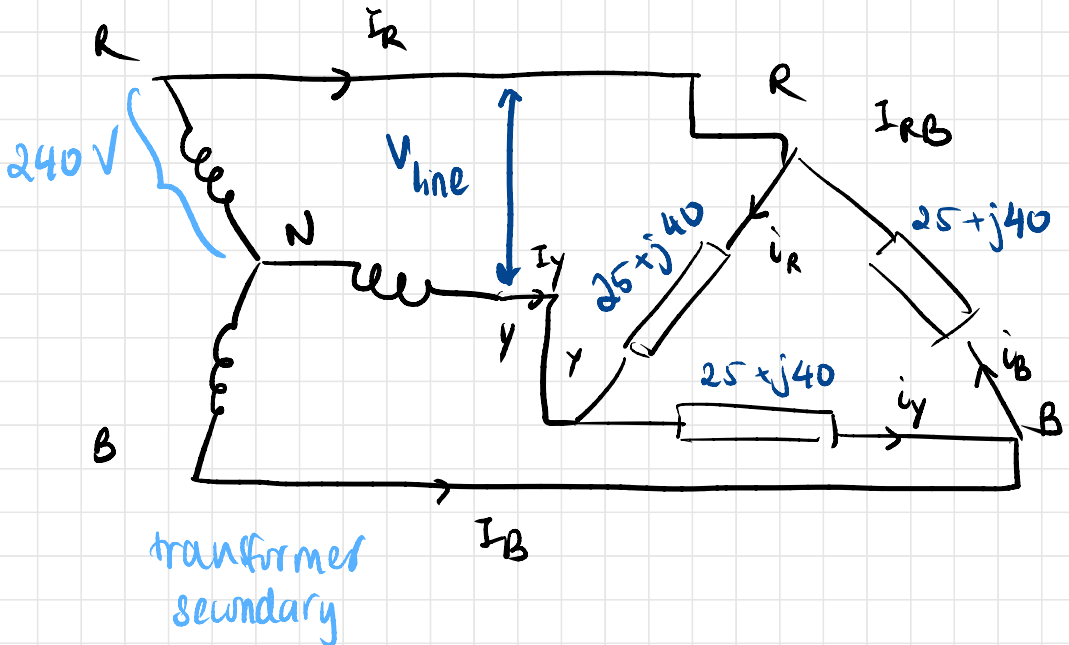 R
I_R
R
I_RB
240 V
V_line
N
25+j40
i_R
25+j40
I_y
Y
Y
25+j40
i_y
i_B
B
B
I_B
transformer
secondary